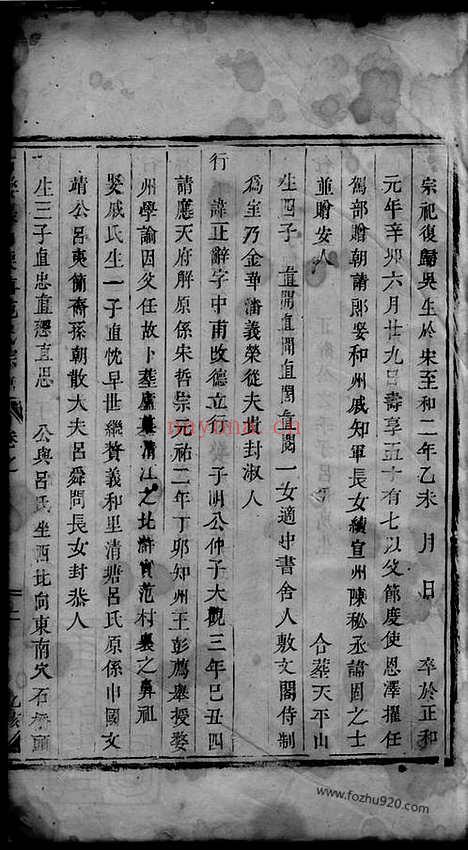 宗祀復歸吳生於宋至和二年乙未 月 日 卒於正和
元年辛卯六月廿九日壽享五十有七以父節度使恩澤擢任
駕部贈朝請郎娶和州戚知軍長女續宣州陳秘丞諱固之士
並贈安人 合葬天平山
生四子 直開直間直閎直閱一女適中書舍人敷文閣侍制
爲室乃金華潘義榮從夫貴封淑人
行 諱正辭字中甫改德立行 子明公仲子大觀三年己丑四
請應天府解原係宋哲宗元祐二年丁卯知州王彭薦舉授婺
州學諭因父任故卜葬 清江之北滸實范村裏之鼻祖
娶戚氏生一子直忱早世繼贅義和里清塘呂氏原係申國文
靖公呂夷簡裔孫朝散大夫呂舜問長女封恭人
生三子直忠直愿直思 公與呂氏坐西北向東南穴石橋頭
卷之
nayona.cn
www.fozhu920.com